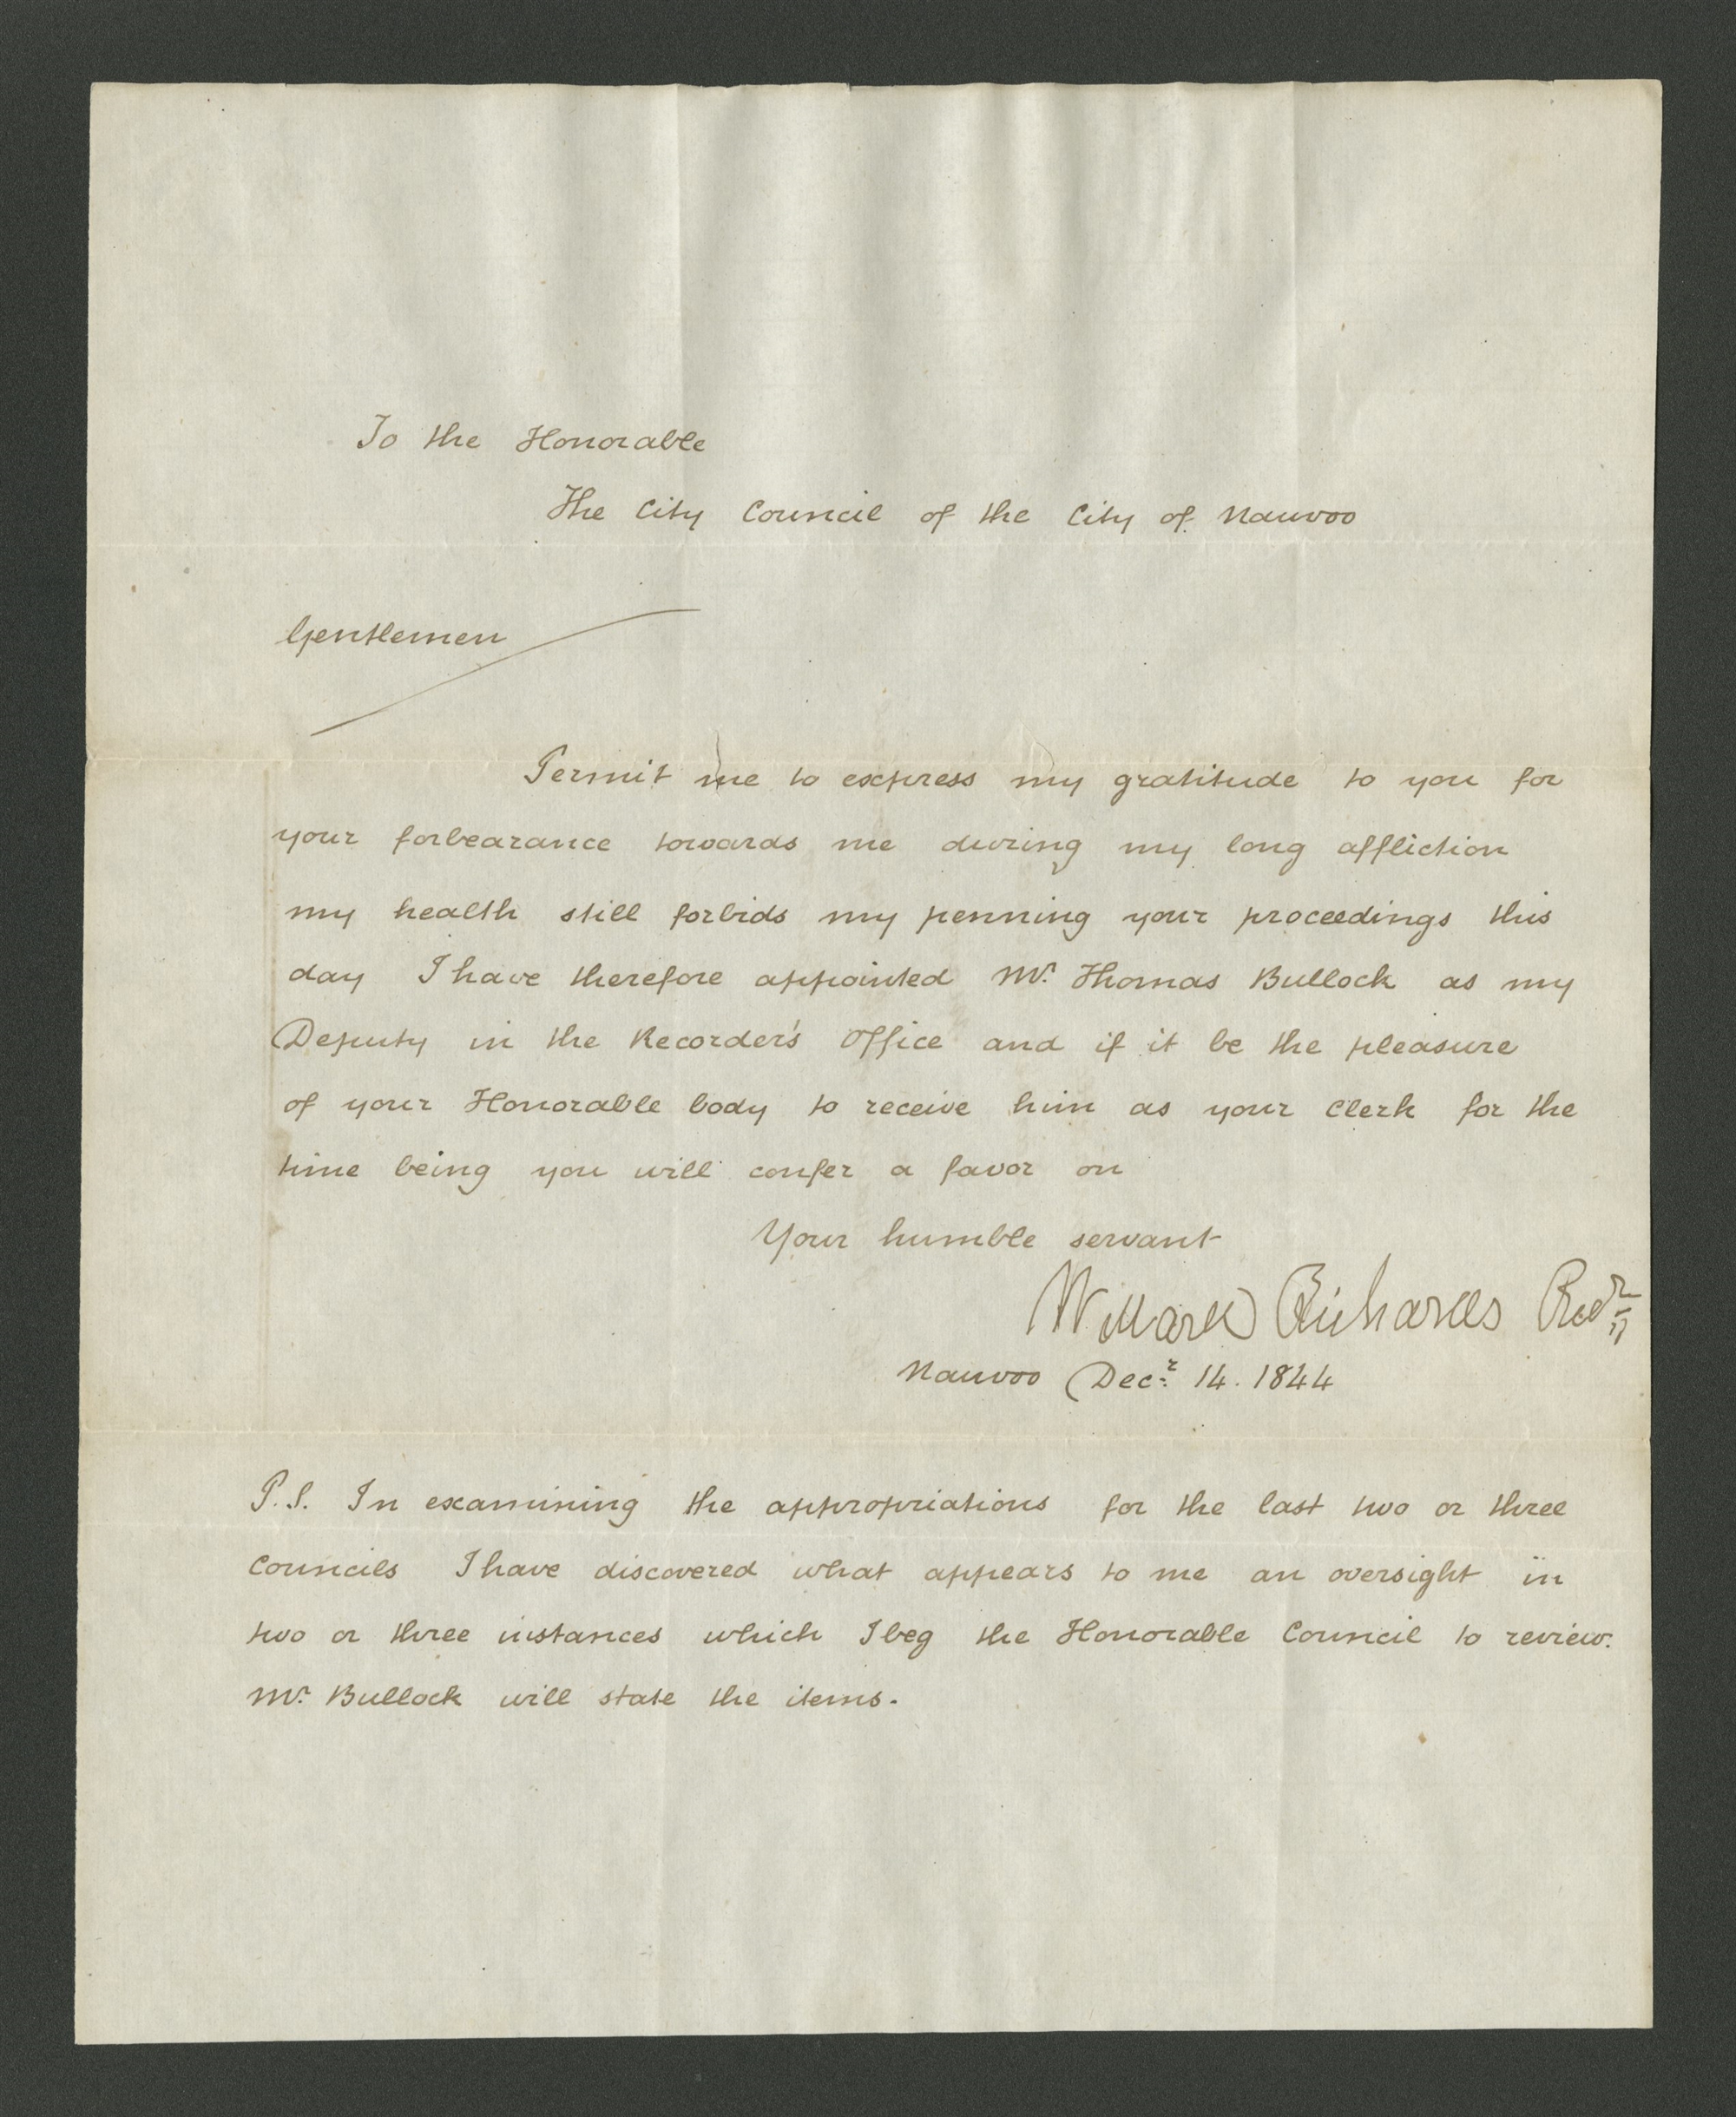 To the Honorable
The City Council of the City of Nauvoo
Gentlemen
Permit me to express my gratitude to you for
your forbearance towards me during my long affliction
my health still forbids my penning your proceedings this
day I have therefore appointed Mr. Thomas Bullock as my
Deputy in the Recorder's Office and if it be the pleasure
of your Honorable body to receive him as your Clerk for the
time being you will confer a favor on
Your humble servant
Willard Richards Recdr
Nauvoo Decr. 14. 1844
P.S. In examining the appropriations for the last two or three
Councils I have discovered what appears to me an oversight in
two or three instances which I beg the Honorable Council to review.
Mr. Bullock will state the items.